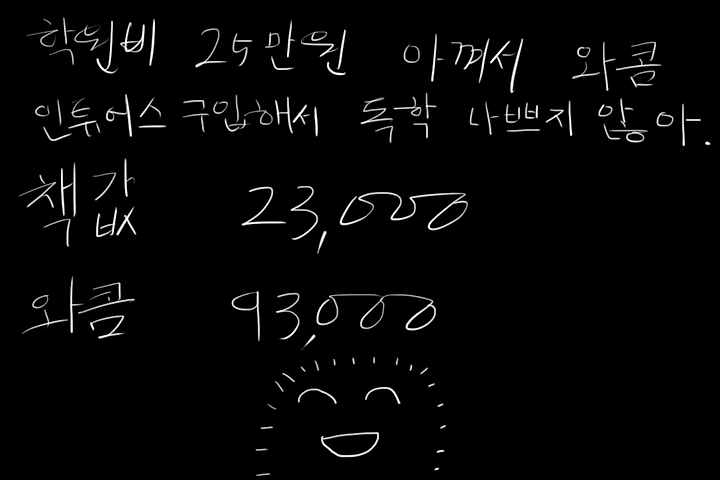 학원비 25만원 아껴서 와콤
인튜어스 구입해서 독학 나쁘지 않아.
책값 23,000
와콤 93,000